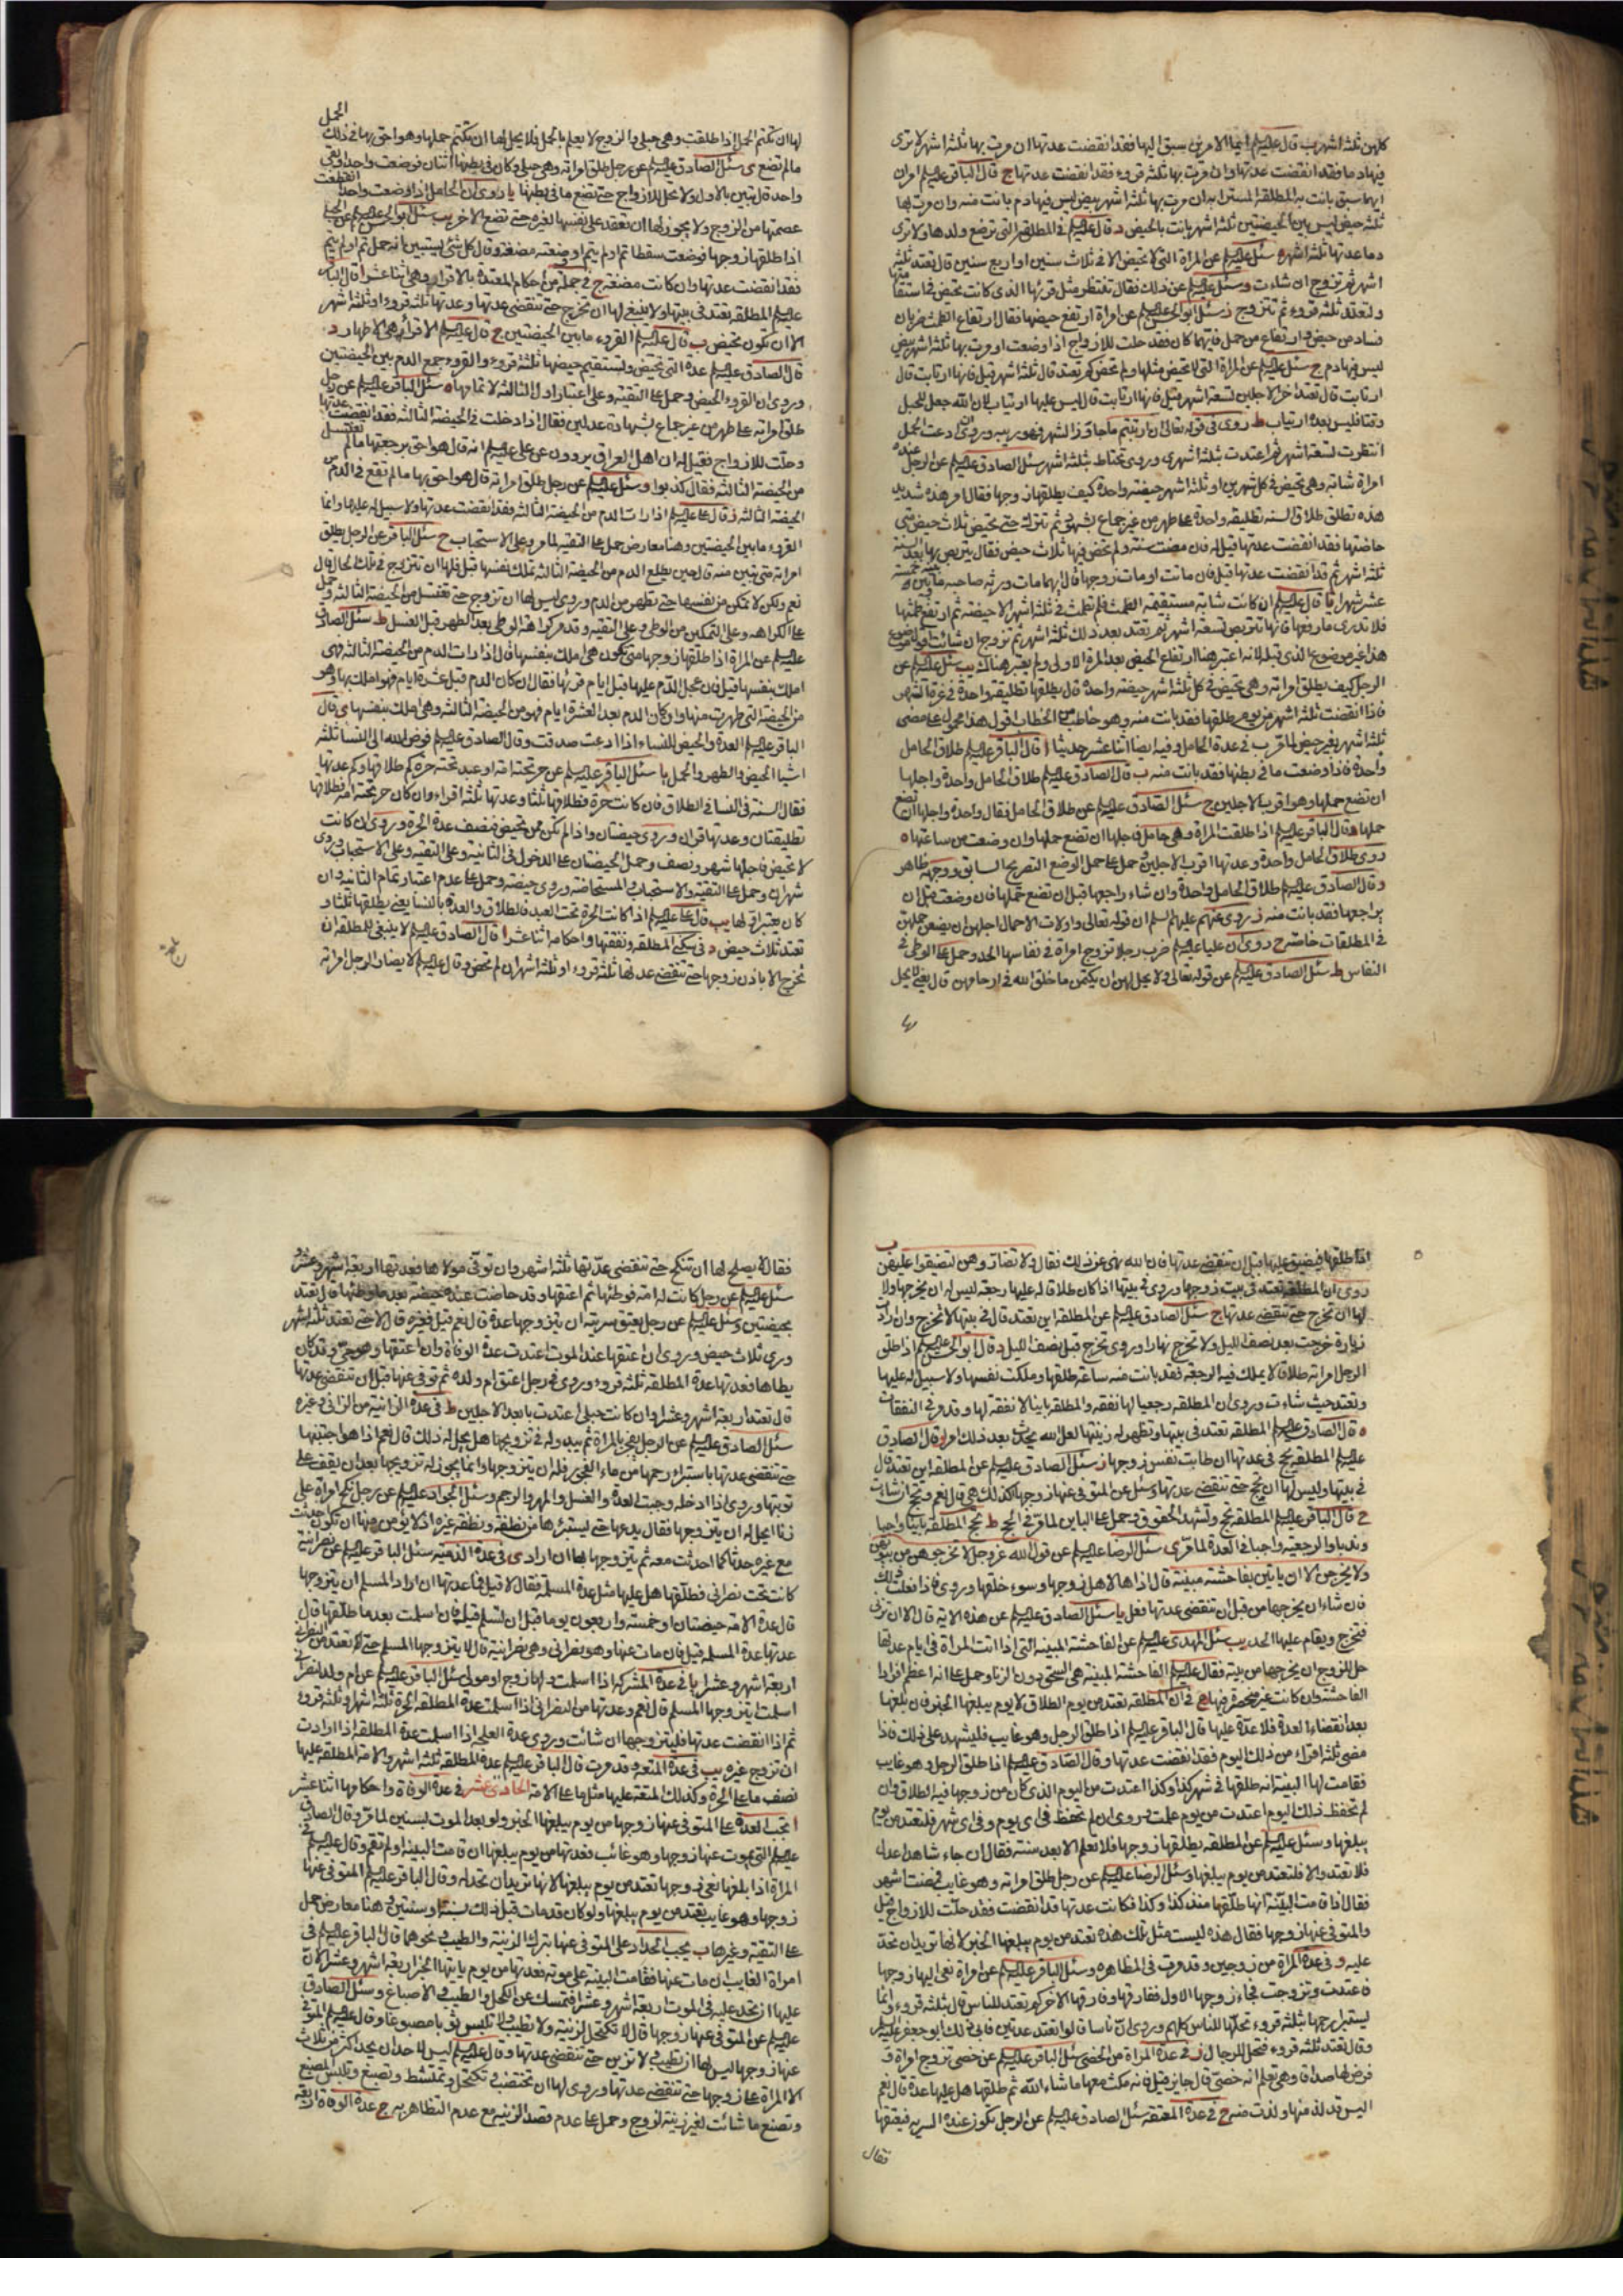 كلهن ثلثة اشهر ب قال عليه السلم ايما الامرين سبق اليها فقد انقضت عدتها ان مرت بها ثلثة اشهر لا ترى
فيها دما فقد انقضت عدتها وان مرت بها ثلثة قروء فقد انقضت عدتها ج قال الباقر عليه السلم امران
ايهما سبق بانت به المطلقة المسترابة ان مرت بها ثلثة اشهر بيض ليس فيها دم بانت منه وان مرت بها
ثلثة حيض ليس بين الحيضتين ثلثة اشهر بانت بالحيض د قال عليه السلم في المطلقة التي ترضع ولدها ولا ترى
دما عدتها ثلثة اشهر ه سئل عليه السلم عن المراة التي لا تحيض الا في ثلاث سنين او اربع سنين قال تعتد ثلثة
اشهر ثم تزوج ان شاءت و سئل عليه السلم عن ذلك فقال تنتظر مثل قرئها الذي كانت تحيض في استقامتها
ولتعتد ثلثة قروء ثم تتزوج ز سئل ابو الحسن عليه السلم عن امراة ارتفع حيضها فقال ارتفاع الطمث ضربان
فساد من حيض وارتفاع من حمل فايهما كان فقد حلت للازواج اذا وضعت او مرت بها ثلثة اشهر بيض
ليس فيها دم ح سئل عليه السلم عن المراة التي لا تحيض مثلها ولم تحض كم تعتد قال ثلثة اشهر قيل فانها ارتابت قال
ارتابت قال تعتد اخر الاجلين تسعة اشهر قيل فانها ارتابت قال ليس عليها ارتياب لان الله جعل للحبل
وقتا فليس بعده ارتياب ط روى في قوله تعالى ان ارتبتم ما جاوز الشهر فهو ريبة وروى ان ادعت الحمل
انتظرت تسعة اشهر ثم اعتدت بثلثة اشهر ى وروى تحتاط بثلثة اشهر سئل الصادق عليه السلم عن الرجل عنده
امراة شابة وهي تحيض في كل شهرين او ثلثة اشهر حيضة واحدة كيف يطلقها زوجها فقال امر هذه شديد
هذه تطلق طلاق السنة تطليقة واحدة على طهر من غير جماع بشهود ثم تترك حتى تحيض ثلاث حيض متى
حاضتها فقد انقضت عدتها قيل له فان مضت سنة ولم تحض فيها ثلاث حيض فقال يتربص بها بعد السنة
ثلثة اشهر ثم قد انقضت عدتها قيل فان ماتت او مات زوجها قال ايهما مات ورثه صاحبه ما بينه وبين خمسة
عشر شهرا يا قال عليه السلم ان كانت شابة مستقيمة الطمث فلم تطمث في ثلثة اشهر الا حيضة ثم ارتفع طمثها
فلا تدرى ما رفعها فانها تتربص تسعة اشهر ثم تعتد بعد ذلك ثلثة اشهر ثم تزوج ان شائت
هذا غير موضوع الذي قبله لانه اعتبر هنا ارتفاع الحيض بعد المرة الاولى ولم يعتبر هناك يب سئل عليه السلم عن
الرجل كيف يطلق امراته وهي تحيض في كل ثلثة اشهر حيضة واحدة قال يطلقها تطليقة واحدة في غرة الشهر
فاذا انقضت ثلثة اشهر من يوم طلقها فقد بانت منه وهو خاطب من الخطاب اقول هذا محمول على مضى
ثلثة اشهر بغير حيض لما مر ب في عدة الحامل وفيه ايضا اثنا عشر حديثا ا قال الباقر عليه السلم طلاق الحامل
واحدة فاذا وضعت ما في بطنها فقد بانت منه ب قال الصادق عليه السلم طلاق الحامل واحدة واجلها
ان تضع حملها وهو اقرب الاجلين ج سئل الصادق عليه السلم عن طلاق الحامل فقال واحدة واجلها ان تضع
حملها د قال الباقر عليه السلم اذا طلقت المراة وهي حامل فاجلها ان تضع حملها وان وضعت من ساعتها ه
روى طلاق الحامل واحدة وعدتها اقرب الاجلين وحمل على حمل الوضع التصريح السابق ووجهه ظاهر
و قال الصادق عليه السلم طلاق الحامل واحدة وان شاء راجعها قبل ان تضع حملها فان وضعت قبل ان
يراجعها فقد بانت منه ز روى عنهم عليهم السلم ان قوله تعالى واولات الاحمال اجلهن ان يضعن حملهن
في المطلقات خاصة ح روى ان عليا عليه السلم ضرب رجلا تزوج امراة في نفاسها الحد وحمل على الوطى في
النفاس ط سئل الصادق عليه السلم عن قوله تعالى ولا يحل لهن ان يكتمن ما خلق الله في ارحامهن قال يعنى لا يحل
لها
لها ان تكتم الحمل اذا طلقت وهي حبلى والزوج لا يعلم بالحمل فلا يحل لها ان تكتم حملها وهو احق بها في ذلك الحمل
ما لم تضع ى سئل الصادق عليه السلم عن رجل طلق امراته وهي حبلى وكان في بطنها اثنان فوضعت واحدا وبقى
واحد قال تبين بالاول ولا تحل للازواج حتى تضع ما في بطنها يا روى ان الحامل اذا وضعت واحدا انقطعت
عصمتها من الزوج ولا يجوز لها ان تعقد على نفسها لغيره حتى تضع الاخر يب سئل ابو الحسن عليه السلم عن الحبلى
اذا طلقها زوجها فوضعت سقطا تم او لم يتم او وضعته مضغة قال كل شئ يستبين انه حمل تم او لم يتم
فقد انقضت عدتها وان كانت مضغة ج في جملة من احكام المعتدة بالاقراء وهي اثنا عشر ا قال الباقر
عليه السلم المطلقة تعتد في بيتها ولا ينبغى لها ان تخرج حتى تنقضى عدتها وعدتها ثلثة قروء او ثلثة اشهر
الا ان تكون تحيض ب قال عليه السلم القروء ما بين الحيضتين ج قال عليه السلم الاقراء هي الاطهار د
قال الصادق عليه السلم عدة التي تحيض وتستقيم حيضها ثلثة قروء والقروء جمع الدم بين الحيضتين
وروى ان القروء الحيض وحمل على التقية وعلى اعتبار اول الثالثة لا تمامها ه سئل الباقر عليه السلم عن رجل
طلق امراته على طهر من غير جماع بشهادة عدلين فقال اذا دخلت في الحيضة الثالثة فقد انقضت عدتها
وحلت للازواج فقيل له ان اهل العراق يروون عن على عليه السلم انه قال هو احق برجعتها ما لم تغتسل
من الحيضة الثالثة فقال كذبوا و سئل عليه السلم عن رجل طلق امراته قال هو احق بها ما لم تقع في الدم من
الحيضة الثالثة ز قال على عليه السلم اذا رات الدم من الحيضة الثالثة فقد انقضت عدتها ولا سبيل له عليها وانما
القروء ما بين الحيضتين وهنا معارض حمل على التقية لما مر وعلى الاستحباب ح سئل الباقر عن الرجل يطلق
امراته متى تبين منه قال حين يطلع الدم من الحيضة الثالثة تملك نفسها قيل فلها ان تتزوج في تلك الحال قال
نعم ولكن لا تمكن من نفسها حتى تطهر من الدم وروى ليس لها ان تزوج حتى تغتسل من الحيضة الثالثة وحمل
على الكراهة وعلى التمكين من الوطى وعلى التقية وقد مر كراهة الوطى بعد الطهر قبل الغسل ط سئل الصادق
عليه السلم عن المراة اذا طلقها زوجها متى تكون هي املك بنفسها قال اذا رات الدم من الحيضة الثالثة فهي
املك بنفسها قيل فان عجل الدم عليها قبل ايام قرئها فقال ان كان الدم قبل عشرة ايام فهو املك بها وهو
من الحيضة التي طهرت منها وان كان الدم بعد العشرة ايام فهو من الحيضة الثالثة وهي املك بنفسها ى قال
الباقر عليه السلم العدة والحيض للنساء اذا ادعت صدقت وقال الصادق عليه السلم فوض الله الى النساء ثلثة
اشيا الحيض والطهر والحمل يا سئل الباقر عليه السلم عن حر تحته امة او عبد تحته حرة كم طلاقها وكم عدتها
فقال السنة في النسا في الطلاق فان كانت حرة فطلاقها ثلثا وعدتها ثلثة اقراء وان كان حر تحته امة فطلاقها
تطليقتان وعدتها قران وروى حيضتان واذا لم تكن ممن تحيض فنصف عدة الحرة وروى ان كانت
لا تحيض فاجلها شهر ونصف وحمل الحيضتان على الدخول في الثانية وعلى التقية وعلى الاستحباب وروى
شهران وحمل على التقية والاستحباب والمستحاضة وروى حيضة وحمل على عدم اعتبار تمام الثانية وان
كان يعتبر اقرائها يب قال على عليه السلم اذا كانت الحرة تحت العبد فالطلاق والعدة بالنسا يعنى يطلقها ثلثا و
تعتد ثلاث حيض د في سكنى المطلقة ونفقتها واحكامه اثنا عشر ا قال الصادق عليه السلم لا ينبغى للمطلقة ان
تخرج الا باذن زوجها حتى تنقضى عدتها ثلثة قروء او ثلثة اشهر ان لم تحض و قال عليه السلم لا يضار الرجل امراته
اذا طلقها فيضيق عليها قبل ان تنقضى عدتها فان الله نهى عن ذلك فقال ولا تضاروهن لتضيقوا عليهن ب
روى ان المطلقة تعتد في بيت زوجها وروى في بيتها اذا كان طلاقا له عليها رجعة ليس له ان يخرجها ولا
لها ان تخرج حتى تنقضى عدتها ج سئل الصادق عليه السلم عن المطلقة اين تعتد قال في بيتها لا تخرج وان ارادت
زيارة خرجت بعد نصف الليل ولا تخرج نهارا وروى تخرج قبل نصف الليل د قال ابو الحسن عليه السلم اذا طلق
الرجل امراته طلاقا لا يملك فيه الرجعة فقد بانت منه ساعة طلقها وملكت نفسها ولا سبيل له عليها
وتعتد حيث شاءت وروى ان المطلقة رجعيا لها نفقة والمطلقة باينا لا نفقة لها وقد مر في النفقات
ه قال الصادق عليه السلم المطلقة تعتد في بيتها وتظهر له زينتها لعل الله يحدث بعد ذلك امرا و قال الصادق
عليه السلم المطلقة تحج في عدتها ان طابت نفس زوجها ز سئل الصادق عليه السلم عن المطلقة اين تعتد قال
في بيتها وليس لها ان تحج حتى تنقضى عدتها وسئل عن المتوفى عنها زوجها اكذلك هي قال نعم وتحج ان شاءت
ح قال الباقر عليه السلم المطلقة تحج وتشهد الحقوق وحمل على الباين لما مر في الحج ط تحج المطلقة باينا واجبا
وندبا والرجعية واجبا في العدة لما مر ى سئل الرضا عليه السلم عن قول الله عز وجل لا تخرجوهن من بيوتهن
ولا يخرجن الا ان ياتين بفاحشة مبينة قال اذاها لاهل زوجها وسوء خلقها وروى فاذا فعلت ذلك
فان شاء ان يخرجها من قبل ان تنقضى عدتها فعل يا سئل الصادق عليه السلم عن هذه الاية قال الا ان تزنى
فتخرج ويقام عليها الحد يب سئل المهدى عليه السلم عن الفاحشة المبينة التي اذا اتت المراة في ايام عدتها
حل للزوج ان يخرجها من بيته فقال عليه السلم الفاحشة المبينة هي السحق دون الزنا وحمل على انه اعظم افراد
الفاحشة وان كانت غير منحصرة فيها ه في ان المطلقة تعتد من يوم الطلاق لا يوم يبلغها الخبر فان بلغها
بعد انقضاء العدة فلا عدة عليها قال الباقر عليه السلم اذا طلق الرجل وهو غايب فليشهد على ذلك فاذا
مضى ثلثة اقراء من ذلك اليوم فقد انقضت عدتها وقال الصادق عليه السلم اذا طلق الرجل وهو غايب
فقامت لها البينة انه طلقها في شهر كذا وكذا اعتدت من اليوم الذي كان من زوجها فيه الطلاق وان
لم تحفظ ذلك اليوم اعتدت من يوم علمت وروى ان لم تحفظ في اى يوم وفي اى شهر فلتعتد من يوم
يبلغها وسئل عليه السلم عن المطلقة يطلقها زوجها فلا تعلم الا بعد سنة فقال ان جاء شاهدا عدل
فلا تعتد والا فلتعتد من يوم يبلغها وسئل الرضا عليه السلم عن رجل طلق امراته وهو غايب فمضت اشهر
فقال اذا قامت البينة انها طلقها منذ كذا وكذا فكانت عدتها قد انقضت فقد حلت للازواج قيل
والمتوفى عنها زوجها فقال هذه ليست مثل تلك هذه تعتد من يوم يبلغها الخبر لانها تريد ان تحد
عليه و في عدة المراة من زوجين وقد مرت في المظاهرة وسئل الباقر عليه السلم عن امراة نعى اليها زوجها
فاعتدت وتزوجت فجاء زوجها الاول ففارقها وفارقها الاخر كم تعتد للناس قال ثلثة قروء وانما
يستبرا رحمها بثلثة قروء تحلها للناس كلهم وروى ان ناسا قالوا تعتد عدتين فابى ذلك ابو جعفر عليه السلم
وقال تعتد ثلثة قروء فتحل للرجال ز في عدة المراة من الخصى سئل الباقر عليه السلم عن خصى تزوج امراة و
فرض لها صداقا وهي تعلم انه خصى قال جايز قيل فانه مكث معها ما شاء الله ثم طلقها هل عليها عدة قال نعم
اليس قد لذ منها ولذت منه ح في عدة المعتقة سئل الصادق عليه السلم عن الرجل تكون عنده السرية فيعتقها
فقال
فقال لا يصلح لها ان تنكح حتى تنقضى عدتها ثلثة اشهر وان توفى مولاها فعدتها اربعة اشهر وعشر
سئل عليه السلم عن رجل كانت له امة فوطئها ثم اعتقها وقد حاضت عنده حيضة بعد ما وطئها قال تعتد
بحيضتين وسئل عليه السلم عن رجل يعتق سريته ان يتزوجها بغير عدة قال نعم قيل فغيره قال لا حتى تعتد ثلثة اشهر
وروى ثلاث حيض وروى ان اعتقها عند الموت اعتدت عدة الوفاة وان اعتقها وهو حى وقد كان
يطاها فعدتها عدة المطلقة ثلثة قروء وروى في رجل اعتق ام ولده ثم توفى عنها قبل ان تنقضى عدتها
قال تعتد اربعة اشهر وعشرا وان كانت حبلى اعتدت بابعد الاجلين ط في عدة الزانية من الزانى وغيره
سئل الصادق عليه السلم عن الرجل يفجر بالمراة ثم يبدو له في تزويجها هل يحل له ذلك قال نعم اذا هو اجتنبها
حتى تنقضى عدتها باستبراء رحمها من ماء الفجور فله ان يتزوجها وانما يجوز له تزويجها بعد ان يقف على
توبتها وروى اذا ادخله وجبت العدة والغسل والمهر والرجم وسئل الجواد عليه السلم عن رجل نكح امراة على
زنا ايحل له ان يتزوجها فقال يدعها حتى يستبرئها من نطفته ونطفة غيره اذ لا يؤمن منها ان تكون احدثت
مع غيره حدثا كما احدثت معه ثم يتزوجها بها ان اراد ى في عدة الذمية سئل الباقر عليه السلم عن نصرانية
كانت تحت نصرانى فطلقها هل عليها مثل عدة المسلمة فقال لا قيل فما عدتها ان اراد المسلم ان يتزوجها
قال عدة الامة حيضتان او خمسة واربعون يوما قبل ان تسلم قيل فان اسلمت بعد ما طلقها قال
عدتها عدة المسلمة قيل فان مات عنها وهو نصرانى وهي نصرانية قال لا يتزوجها المسلم حتى تعتد من النصرانى
اربعة اشهر وعشرا يا في عدة المشركة اذا اسلمت ولها زوج او مولى سئل الباقر عليه السلم عن ام ولد لنصرانى
اسلمت ايتزوجها المسلم قال نعم وعدتها من النصرانى اذا اسلمت عدة المطلقة الحرة ثلثة اشهر او ثلثة قروء
ثم اذا انقضت عدتها فليتزوجها ان شائت وروى عدة العلجة اذا اسلمت عدة المطلقة اذا ارادت
ان تزوج غيره يب في عدة المتعة وقد مرت قال الباقر عليه السلم عدة المطلقة ثلثة اشهر والامة المطلقة عليها
نصف ما على الحرة وكذلك المتعة عليها مثل ما على الامة الحادى عشر في عدة الوفاة واحكامها اثنا عشر
ا تجب العدة على المتوفى عنها زوجها من يوم يبلغها الخبر ولو بعد الموت بسنين لما مر وقال الصادق
عليه السلم التي يموت عنها زوجها وهو غائب فعدتها من يوم يبلغها ان قامت البينة او لم تقم وقال عليه السلم في
المراة اذا بلغها نعى زوجها تعتد من يوم يبلغها لانها تريد ان تحد له وقال الباقر عليه السلم المتوفى عنها
زوجها وهو غايب تعتد من يوم يبلغها ولو كان قد مات قبل ذلك بسنة او سنتين وهنا معارض حمل
على التقية وغيرها ب يجب الحداد على المتوفى عنها بترك الزينة والطيب ونحوهما قال الباقر عليه السلم في
امراة الغايب ان مات عنها فقامت البينة على موته فعدتها من يوم ياتيها الخبر اربعة اشهر وعشر الان
عليها ان تحد عليه في الموت اربعة اشهر وعشرا فتمسك عن الكحل والطيب والاصباغ وسئل الصادق
عليه السلم عن المتوفى عنها زوجها قال لا تكتحل للزينة ولا تطيب ولا تلبس ثوبا مصبوغا وقال عليه السلم المتوفى
عنها زوجها ليس لها ان تطيب ولا تزين حتى تنقضى عدتها وقال عليه السلم ليس لاحد ان يحد اكثر من ثلاث
الا المراة على زوجها حتى تنقضى عدتها وروى لها ان تختضب وتكتحل وتمتشط وتصبغ وتلبس المصبغ
وتصنع ما شائت لغير زينة لزوج وحمل على عدم قصد الزينة مع عدم التظاهر به ج عدة الوفاة اربعة